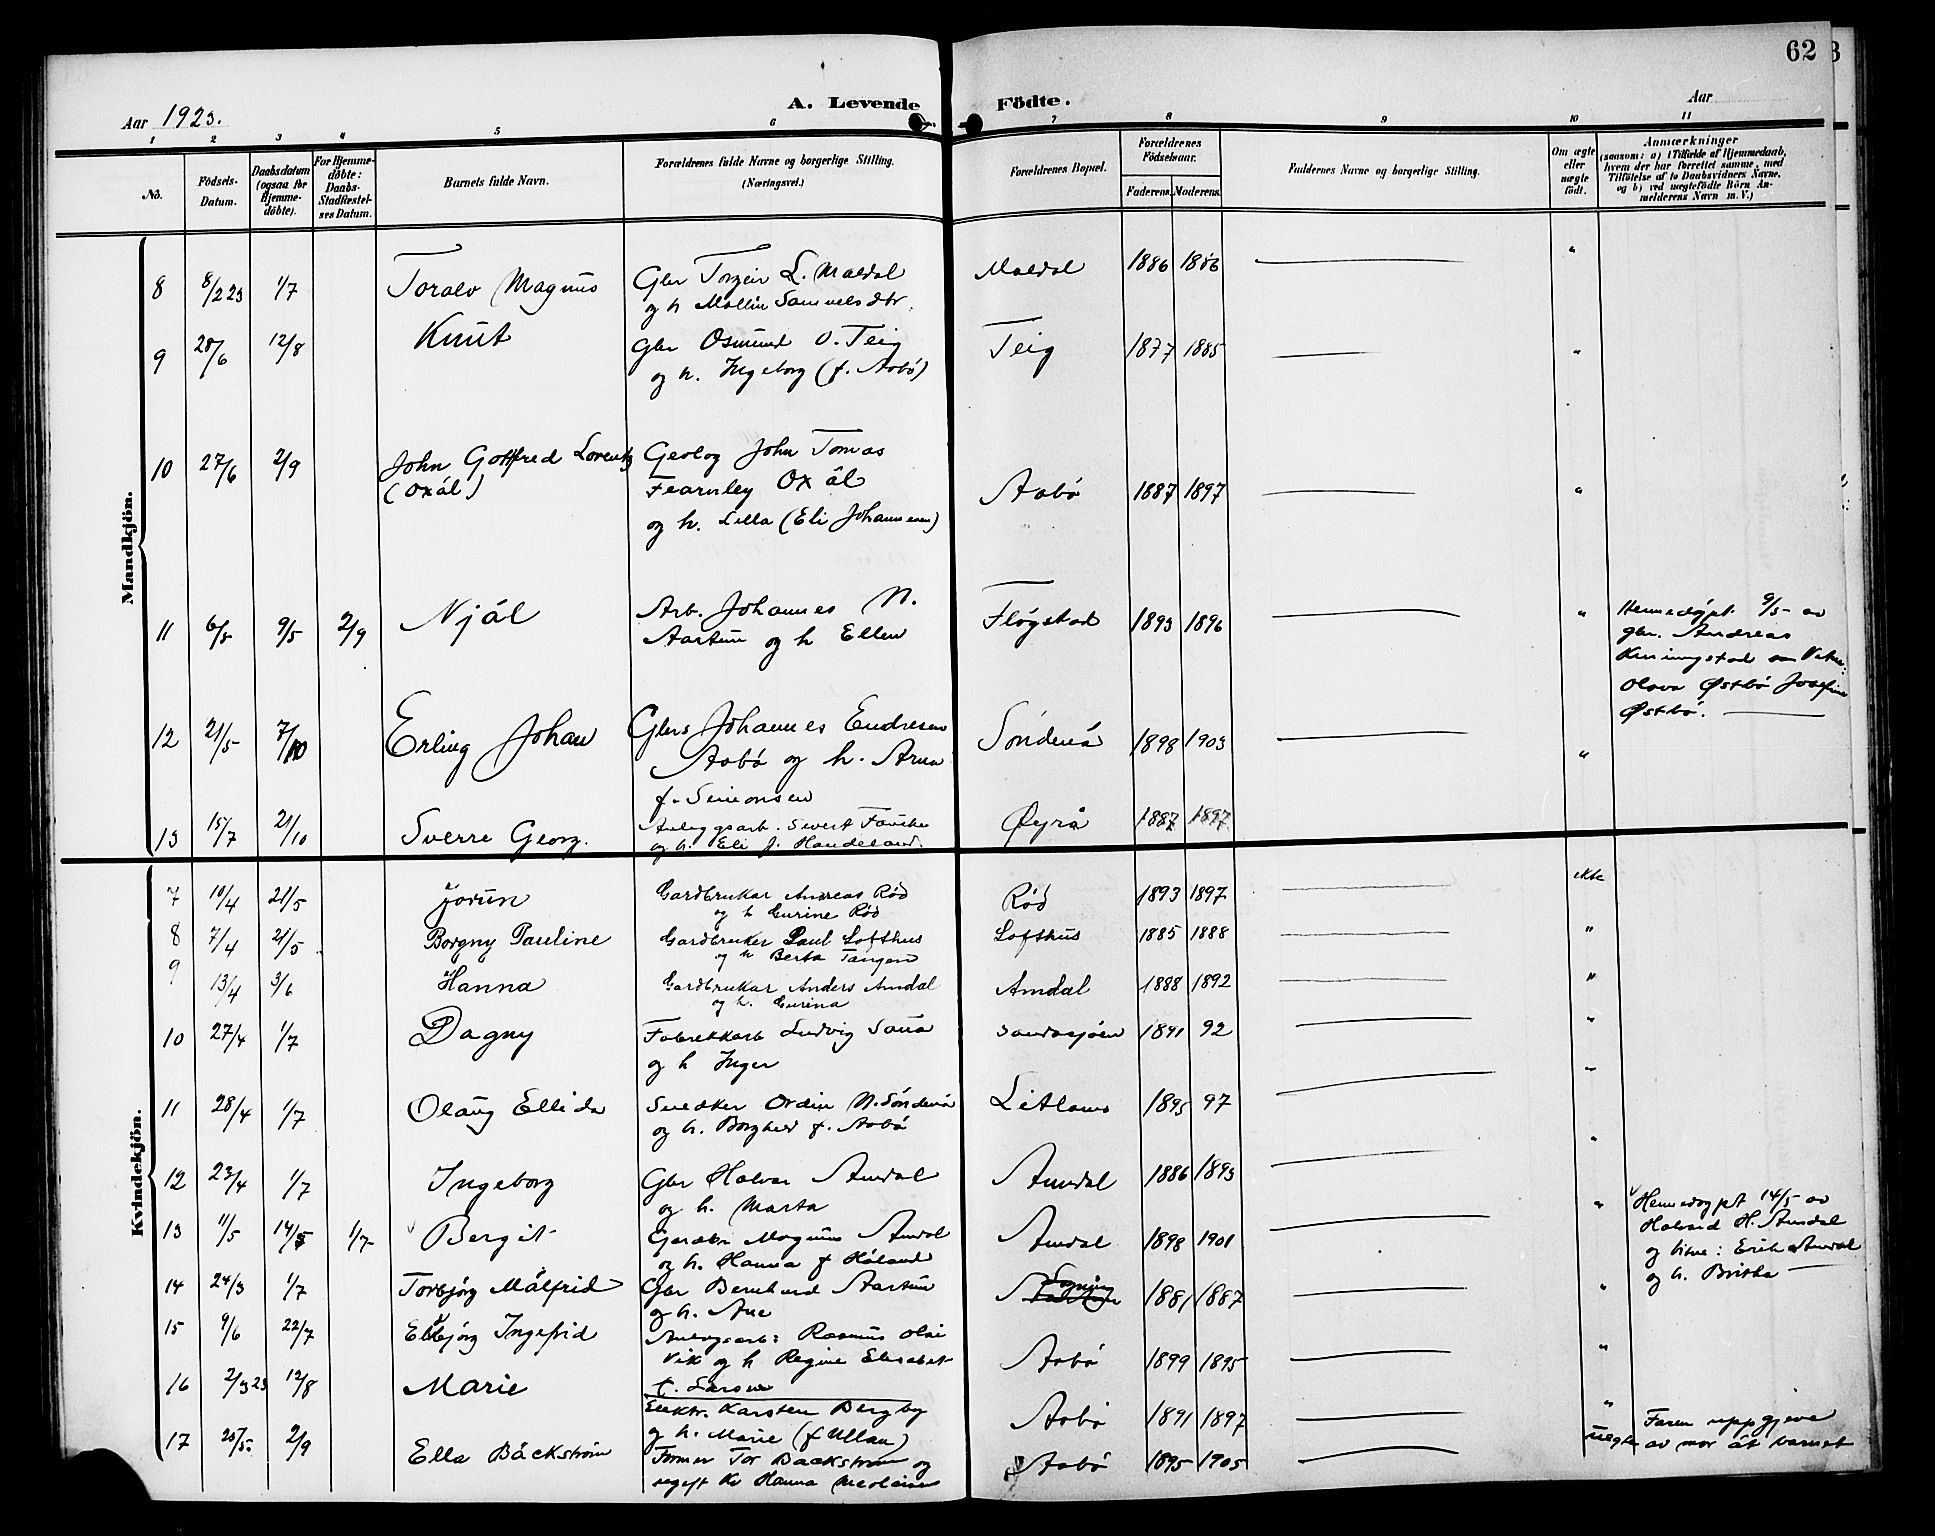 62
Aar 1923.
A. Levende Födte.
Aar
1 2 3 4 5 6 7 8 9 10 11
No.
Födsels-Datum.
Daabsdatum (ogsaa for Hjemmedöbte).
For Hjemmedöbte: Daabs-Stadfæstelses Datum.
Barnets fulde Navn.
Forældrenes fulde Navne og borgerlige Stilling. (Næringsvei.)
Forældrenes Bopæl.
Forældrenes Födselsaar.
Faderens. Moderens.
Faddernes Navne og borgerlige Stilling.
Om ægte eller uægte födt.
Anmærkninger
(saasom: a) i Tilfælde af Hjemmedaab,
hvem der har forrettet samme, med
Tilföielse af to Daabsvidners Navne,
og b) ved uægtefödte Börn An-
melderens Navn m. V.)
Mandkjön.
8 8/2 23 1/7 Toralv Magnus Gbr Torgeir L. Maldal Maldal 1886 1886 "
og h Mallin Samuelsdtr.
9 28/6 12/8 Knut Gbr Osmund O. Teig Teig 1877 1885 "
og h. Ingeborg (f. Aabö)
10 27/6 2/9 John Gottfred Lorentz Geolog John Tomas
(Oxál) Fearnley Oxál Aabö 1887 1897 "
og h. Lilla (Eli Johannesen)
11 6/5 9/5 2/9 Njál Arb. Johannes N. Fløgstad 1893 1896 " Hemedöypt 9/5 av
Aartun og h Ellen gbr. Andreas
Olava Østbö Josefine
Østbö.
12 21/5 7/10 Erling Johan Gbrs Johannes Endresen Söndenå 1898 1903 "
Aabö og h. Arna
f. Simonsen
13 15/7 21/10 Sverre Georg. Anleggsarb. Sivert Øyrå 1887 1897
og h. Eli J. Handeland.
Kvindekjön.
7 10/4 21/5 Jorun Gardbrukar Andreas Rød Rød 1893 1897 ekte
og h Gurine Rød
8 7/4 21/5 Borgny Pauline Gardbruker Paul Lofthus Lofthus 1885 1888 "
og h Berta Tangen
9 13/4 3/6 Hanna Gardbrukar Anders Amdal Amdal 1888 1892 "
og h. Gurina
10 27/4 1/7 Dagny Fabrikkarb Ludvig Saua Saudasjöen 1891 92 "
og h Inger
11 28/4 1/7 Olaug Ellida Snedker Ordin N. Söndenå 1895 97 "
og h. Borghild f. Aabö
12 23/4 1/7 Ingeborg Gbr Halvar Amdal Amdal 1886 1893 "
og h. Marta
13 11/5 14/5 1/7 Bergit Gardbr Magnus Amdal Amdal 1898 1901 " Hemedøypt 14/5 av
og h. Hanna f Háland Halvard H. Amdal
og vitne: Erik Amdal
og h. Britha
14 24/3 1/7 Torbjørg Målfrid Gbr Bernhard Aartun 1881 1887 "
og h. Ane
15 9/6 22/7 Elbjørg Ingefrid Anleggsarb: Rasmus Olai
Vik og h Regine Elisabet Aabö 1899 1895 "
f. Larsen
16 2/3 23 12/8 Marie Elektr. Karsten Bergby Aabö 1891 1897 "
og h. Marie (f Ullan)
17 2/9 Ella Bäckström Former Tor Backström og Aabö 1895 1905 uegte Faren uppgjeve
ugift Kv Hanna av mor át barnet